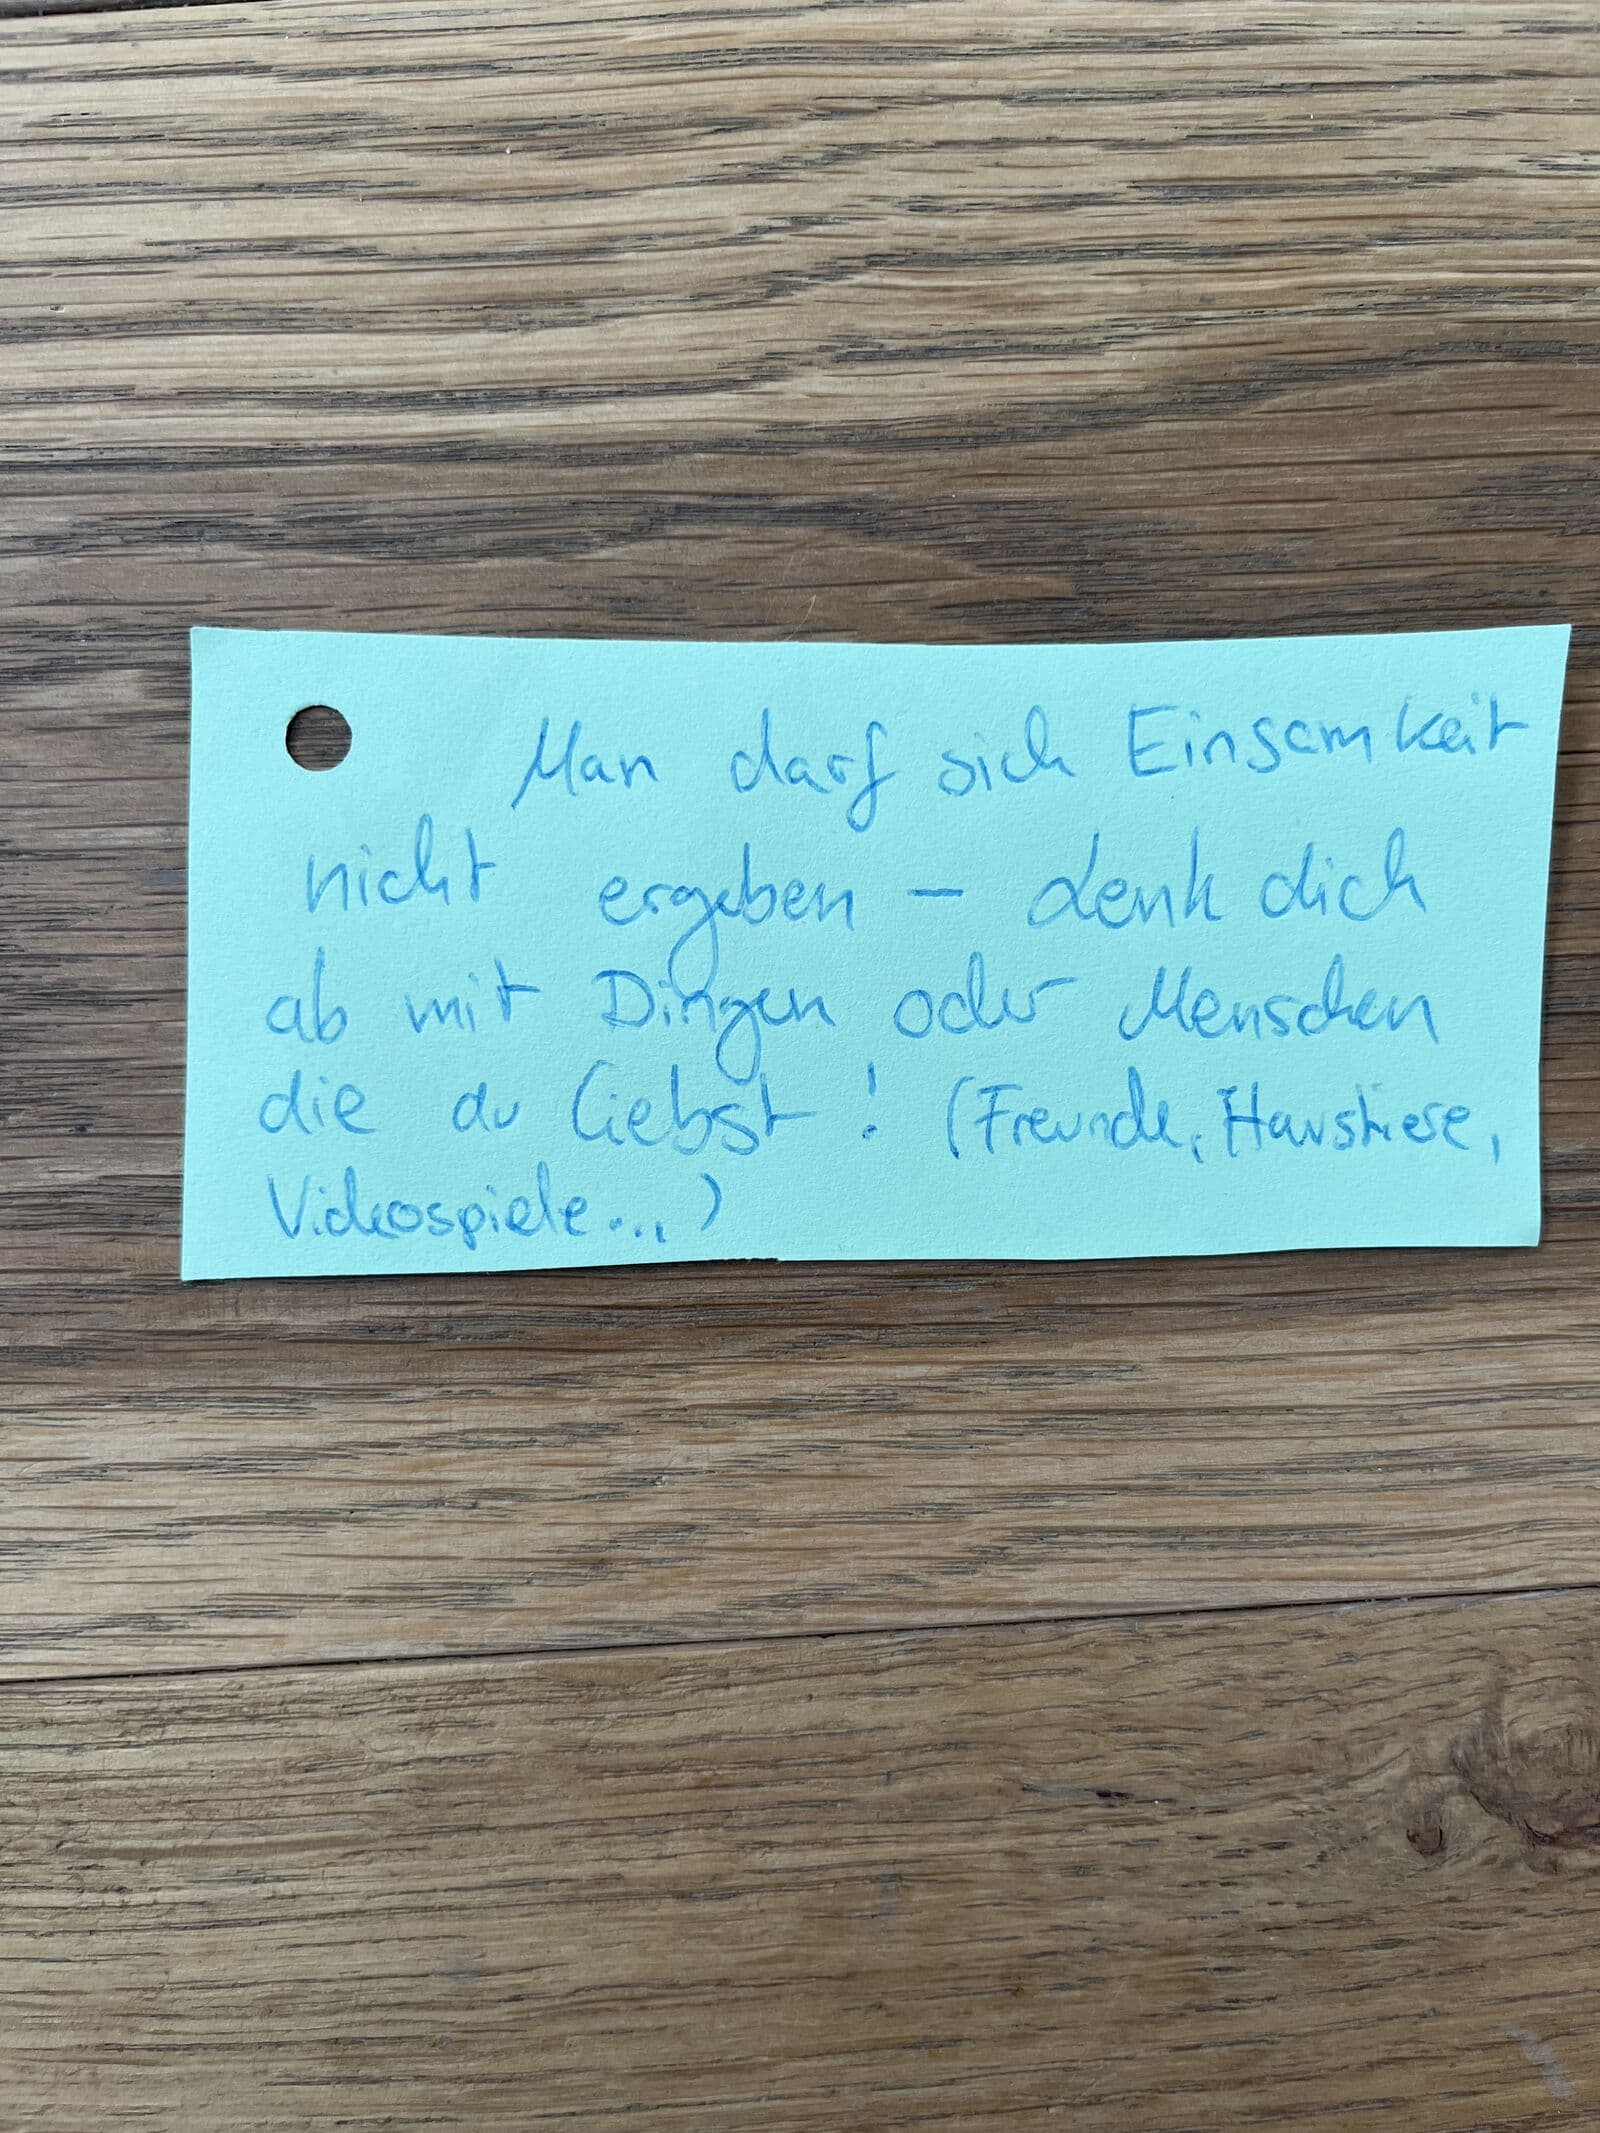 Man darf sich Einsamkeit
nicht ergeben – denk dich
ab mit Dingen oder Menschen
die du liebst! (Freunde, Haustiere,
Videospiele...)